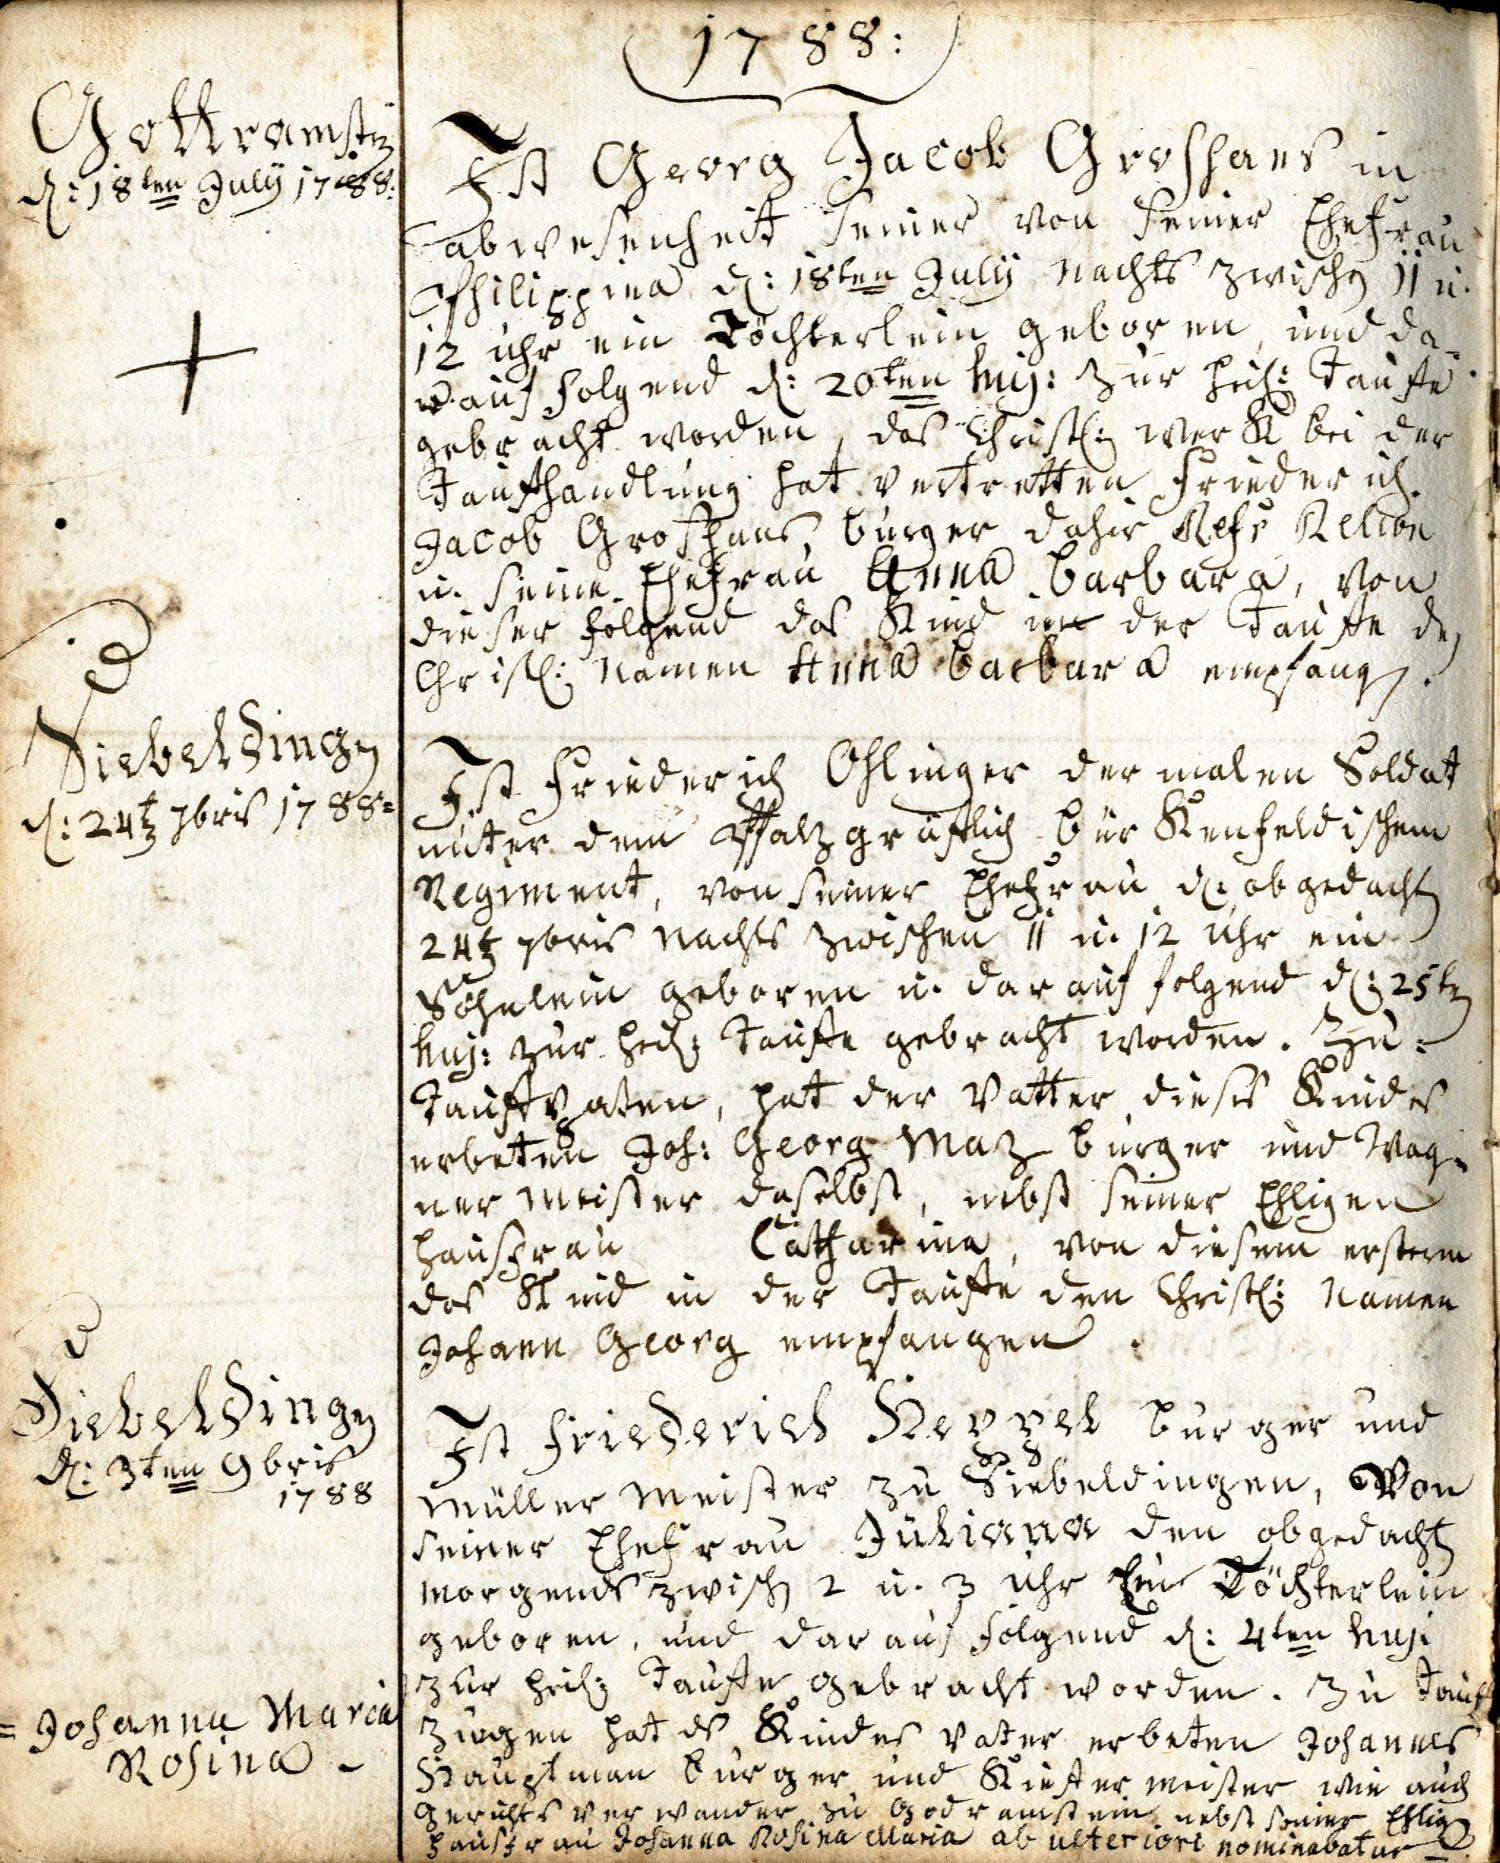 1788:
Gottramst
d: 18ten July 1788:
Ist Georg Jacob Groshans in
abwesenheit seiner von seiner Ehefrau
Philippina d: 18ten July Nachts zwischen 11 u.
12 uhr ein Töchterlein geboren, und da-
rauf folgend d: 20ten huj: zur heil: Tauffe
gebracht worden, das Christl: werk bei der
Taufhandlung hat vertretten Friederich
Jacob Groshans, burger dahir Refr Relion
u. seine Ehefrau Anna barbara, von
dieser folgend das Kind in der Tauffe den
Christl: Namen Anna barbara empfangen.
Siebeldingen
d: 24ten 7bris 1788=
Ist Friederich Ohlinger dermalen Soldat
unter dem Pfalzgräflich bürkenfeldischem
Regiment, von seiner Ehefrau d: obgedachten
24ten 7bris Nachts zwischen 11 u. 12 Uhr ein
Söhnlein geboren u. darauf folgend d: 25ten
huj: zur heil: Tauffe gebracht worden. Zu-
Tauffpaten, hat der Vatter dieses Kindes
erbeten Joh: Georg Maz burger und Wag-
ner Meister daselbst, nebst seiner Ehligen
hausfrau Catharina, von diesem erstern
das Kind in der Tauffe den Christl: Namen
Johann Georg empfangen.
Siebeldingen
d: 3ten 9bris
1788
Ist Friederich Keppel burger und
müller meister zu Siebeldingen, Von
seiner Ehefrau Juliana den obgedachten
morgends zwischen 2 u. 3 uhr Ein Töchterlein
geboren, und darauf folgend d: 4ten huj:
zur heil: Tauffe gebracht worden. Zu Tauf
zeugen hat des Kindes Vater erbeten Johannes
Hauptman burger und Kieffer meister wie auch
Gerichts verwander zu Godramstein nebst seiner Ehligen
hausfrau Johanna Rosina Maria ab ulteriori nominabatur
= Johanna Maria
Rosina -